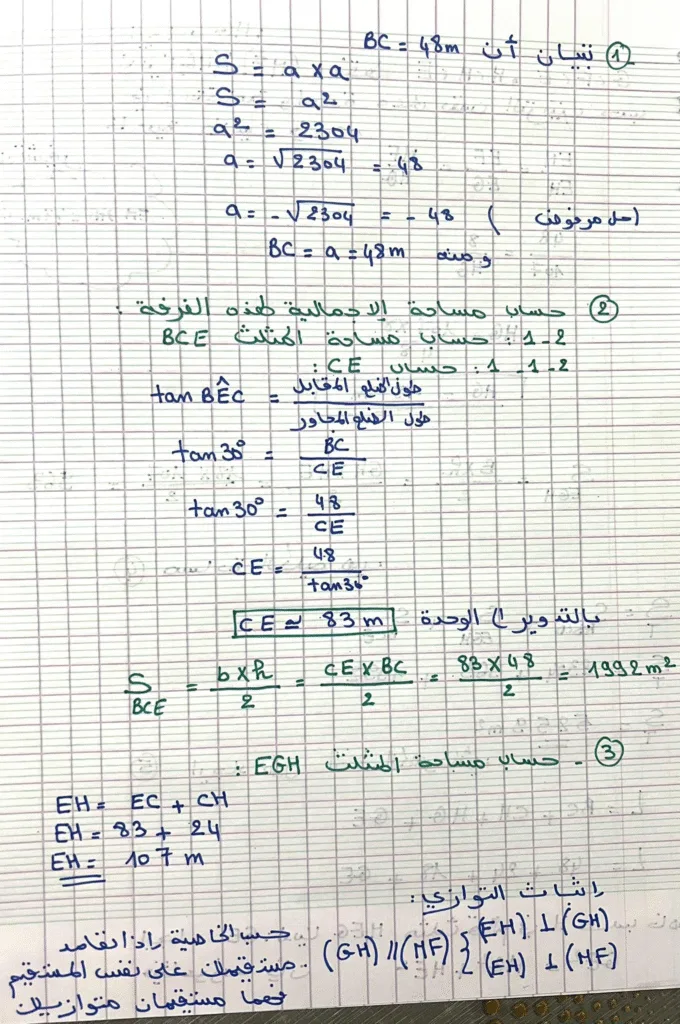 ① تبيان أن BC = 48m
S = a x a
S = a²
a² = 2304
a = √2304 = 48
a = -√2304 = - 48 (حل مرفوض)
ومنه BC = a = 48m
② حساب مساحة الإجمالية لهذه الغرفة :
2-1 : حساب مساحة المثلث BCE
2-1-1 : حساب CE :
tan BÊC = طول الضلع المقابل / طول الضلع المجاور
tan 30° = BC / CE
tan 30° = 48 / CE
CE = 48 / tan 30°
CE ≃ 83 m بالتدوير إلى الوحدة
S BCE = b x h / 2 = CE x BC / 2 = 83 x 48 / 2 = 1992 m²
③ - حساب مساحة المثلث EGH :
EH = EC + CH
EH = 83 + 24
EH = 107 m
إثبات التوازي :
(GH) // (MF) { (EH) ⊥ (GH)
(EH) ⊥ (MF)
حسب الخاصية إذا تعامد
مستقيمان على نفس المستقيم
فهما مستقيمان متوازيان